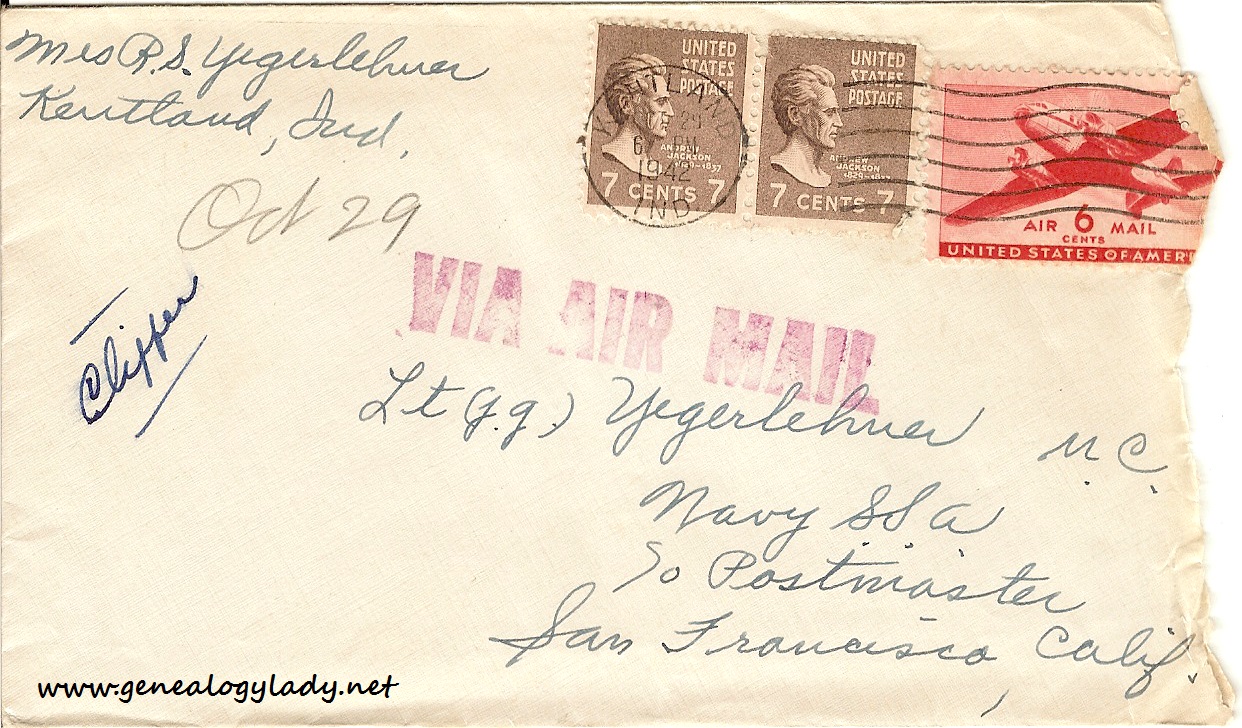 Mrs R.S. Yegerlehner
Kentland, Ind.
Oct 29
Clipper
UNITED STATES POSTAGE
ANDREW JACKSON
1829-1837
7 CENTS 7
UNITED STATES POSTAGE
ANDREW JACKSON
1829-1837
7 CENTS 7
KENTLAND
29
1942
IND.
AIR 6 MAIL
CENTS
UNITED STATES OF AMERI
VIA AIR MAIL
Lt (j.g.) Yegerlehner M.C.
Navy S.S.A.
c/o Postmaster
San Francisco, Calif.
www.genealogylady.net